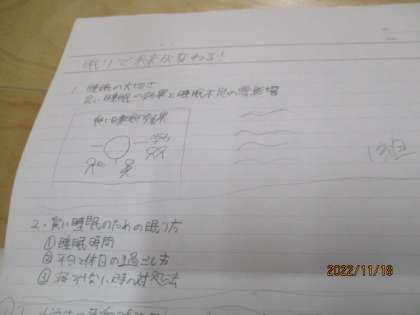 眠りで未来が変わる!
1. 睡眠の大切さ
良い睡眠の効果と睡眠不足の悪影響
良い睡眠の効果
2. 良い睡眠のための眠り方
①睡眠時間
②平日と休日の過ごし方
③寝れない時の対処法
2022/11/18